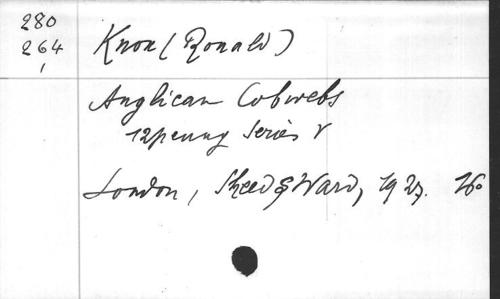 280
264
Knox (Ronald)
Anglican Cobwebs
12penny Series V
London, Sheed & Ward, 1927. 16°